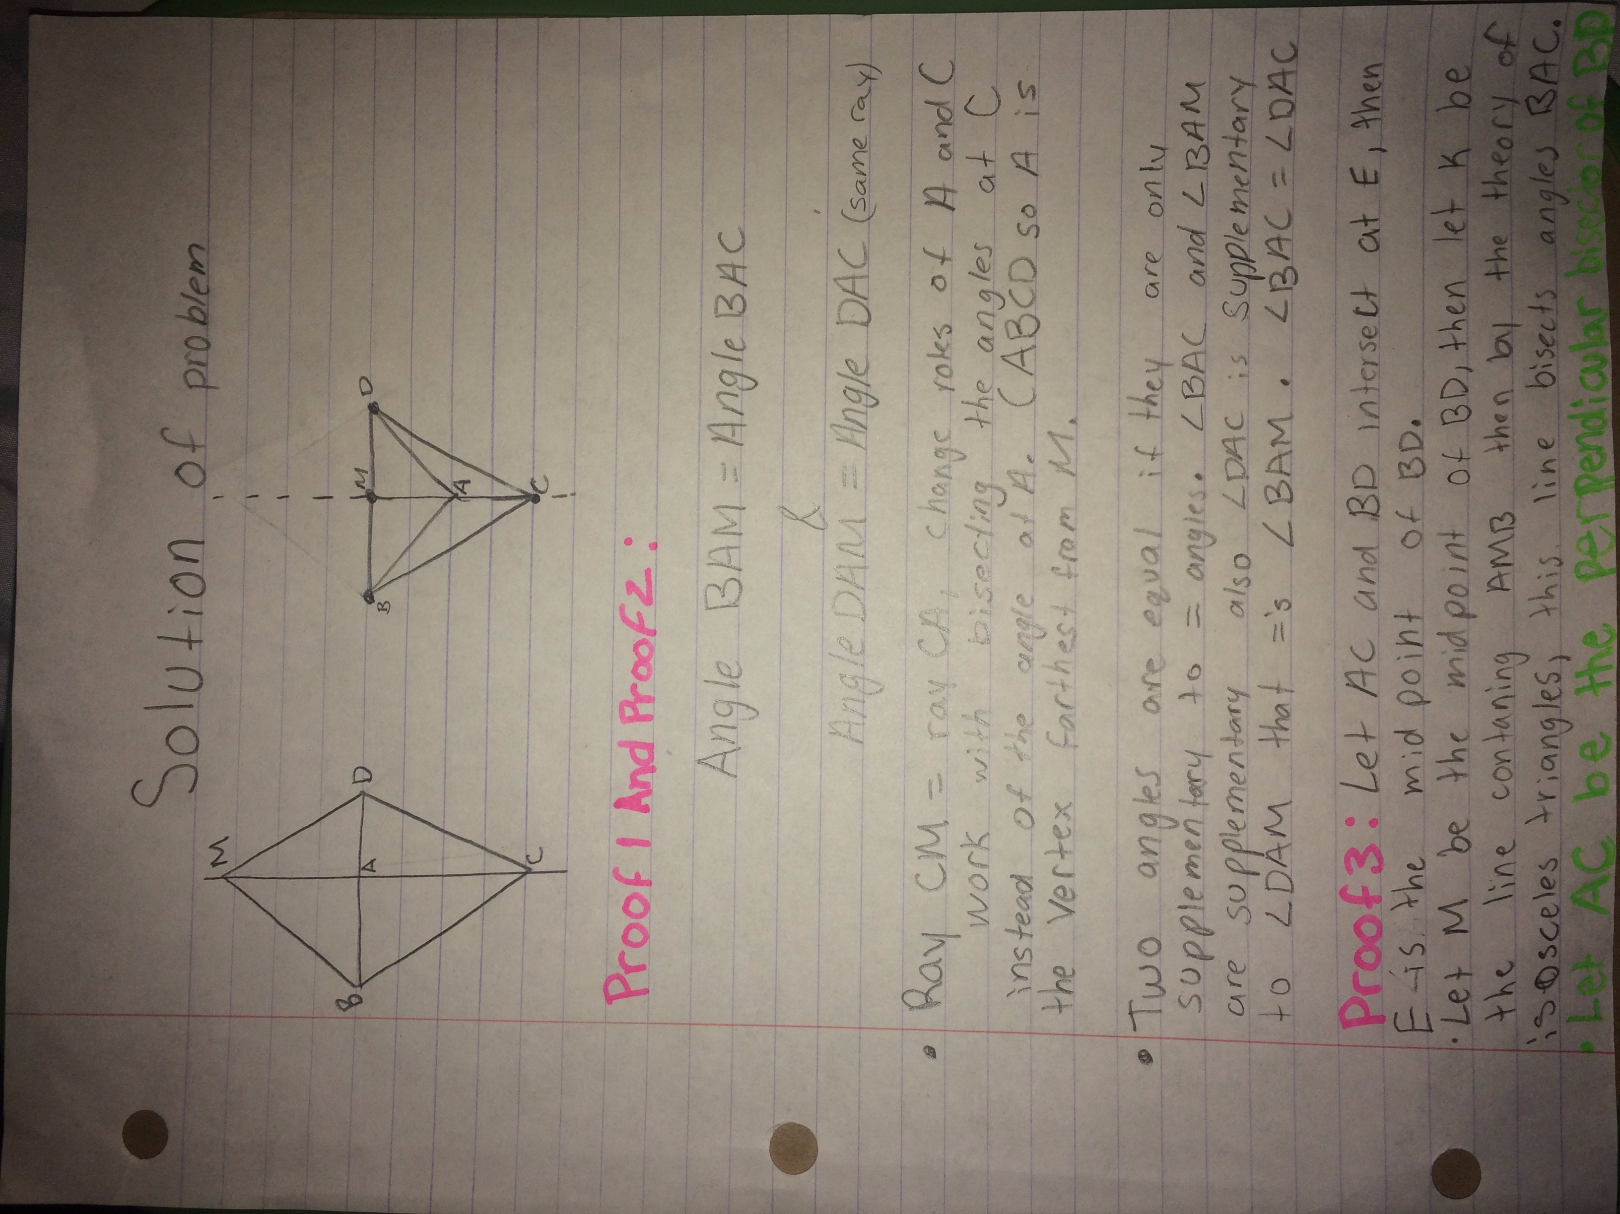 Solution of problem
M
B
A
D
C
B
M
D
A
C
Proof 1 And Proof 2:
Angle BAM = Angle BAC
&
Angle DAM = Angle DAC (same ray)
• Ray CM = ray CA, change roles of A and C
work with bisecting the angles at C
instead of the angle at A. (ABCD so A is
the vertex farthest from M.
• Two angles are equal if they are only
supplementary to = angles. ∠BAC and ∠BAM
are supplementary also ∠DAC is supplementary
to ∠DAM that ='s ∠BAM. ∠BAC = ∠DAC
Proof 3: Let AC and BD intersect at E, then
E is the mid point of BD.
• Let M be the midpoint of BD, then let K be
the line contaning AMB then by the theory of
isosceles triangles, this line bisects angles BAC.
• Let AC be the perpendicular bisector of BD